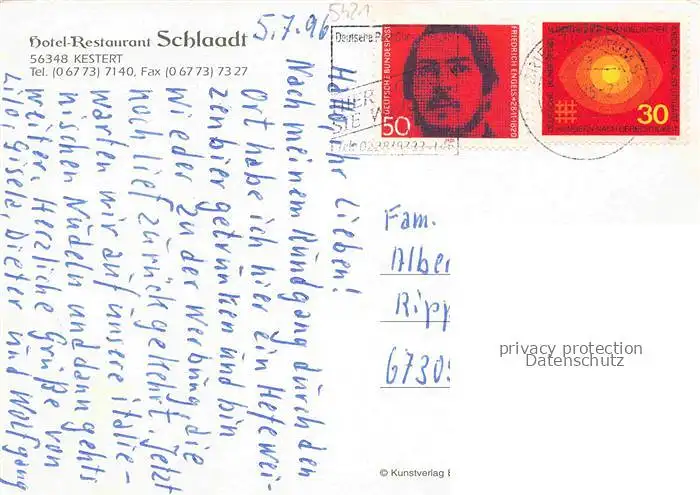 Hotel-Restaurant Schlaadt
56348 KESTERT
Tel. (0 67 73) 71 40, Fax (0 67 73) 73 27
5.7.96
Hallo Ihr Lieben!
Nach meinem Rundgang durch den
Ort habe ich hier ein Hefewei-
zenbier getrunken und bin
wieder zu der Werbung, die
noch lief zurückgekehrt. Jetzt
warten wir auf unsere italie-
nischen Nudeln und dann gehts
weiter. Herzliche Grüße von
Lilo, Gisela, Dieter und Wolfgang
5421
Deutsche Post
DEUTSCHE BUNDESPOST
FRIEDRICH ENGELS * 28·11·1820
50
30
HUNGERN NACH GERECHTIGKEIT
Fam.
Alber
Ripp
6730
privacy protection
Datenschutz
© Kunstverlag